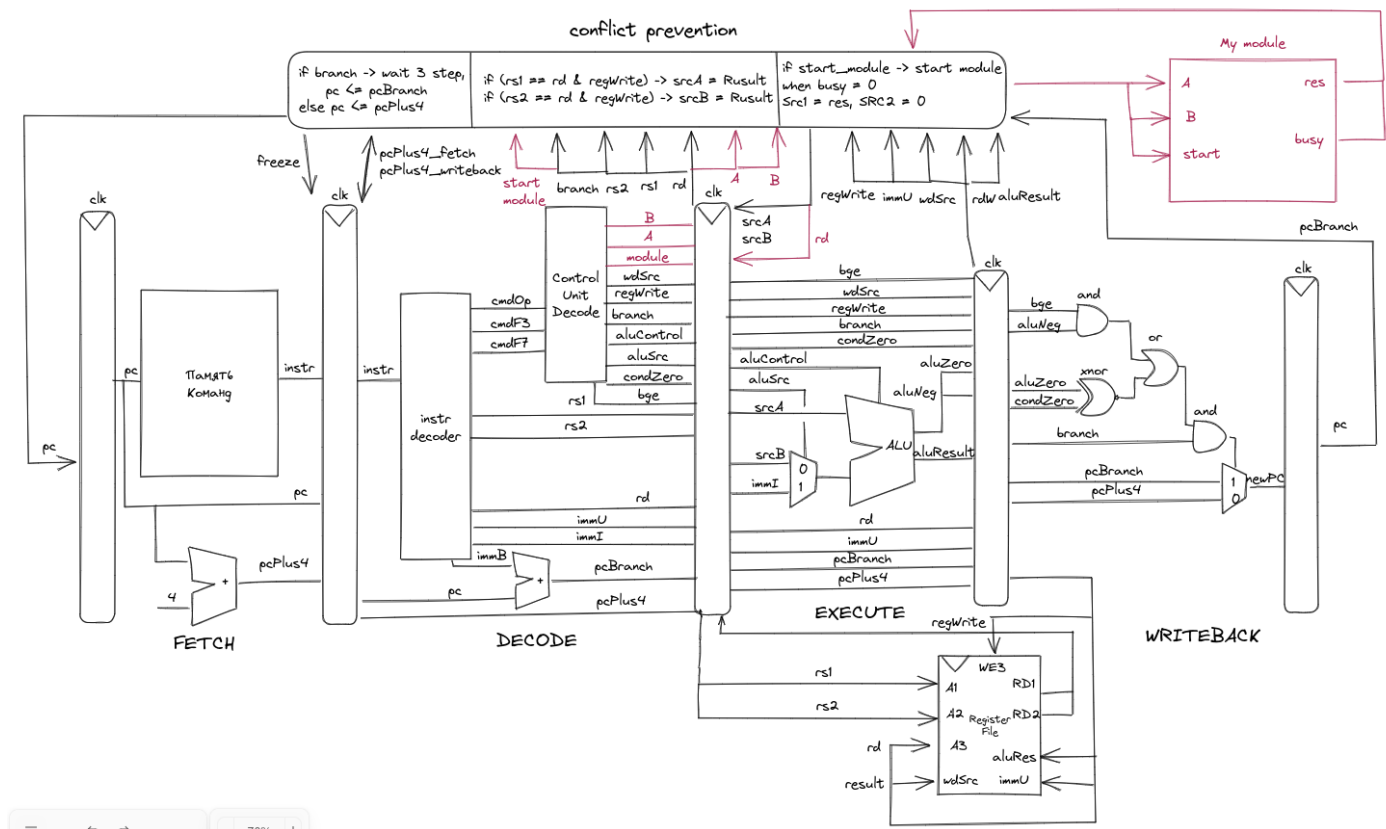 conflict prevention
My module
if branch -> wait 3 step,
pc <= pcBranch
else pc <= pcPlus4
if (rs1 == rd & regWrite) -> srcA = Rusult
if (rs2 == rd & regWrite) -> srcB = Rusult
if start_module -> start module
when busy = 0
Src1 = res, SRC2 = 0
A
res
B
busy
start
freeze
pcPlus4_fetch
pcPlus4_writeback
start
module
branch
rs2
rs1
rd
A
B
regWrite
immU
wdSrc
rdW
aluResult
clk
clk
clk
clk
clk
srcA
srcB
rd
pcBranch
pc
pc
Память
Команд
instr
pc
4
+
pcPlus4
FETCH
instr
instr
decoder
cmdOp
cmdF3
cmdF7
Control
Unit
Decode
B
A
module
wdSrc
regWrite
branch
aluControl
aluSrc
condZero
bge
rs1
rs2
rd
immU
immI
immB
+
pc
pcBranch
pcPlus4
DECODE
bge
wdSrc
regWrite
branch
condZero
aluControl
aluSrc
srcA
srcB
immI
0
1
ALU
aluZero
aluNeg
aluResult
rd
immU
pcBranch
pcPlus4
EXECUTE
bge
aluNeg
and
or
aluZero
condZero
xnor
and
branch
pcBranch
pcPlus4
1
0
newPC
pc
WRITEBACK
regWrite
rs1
rs2
rd
result
WE3
A1
RD1
A2
Register
File
RD2
A3
aluRes
wdSrc
immU